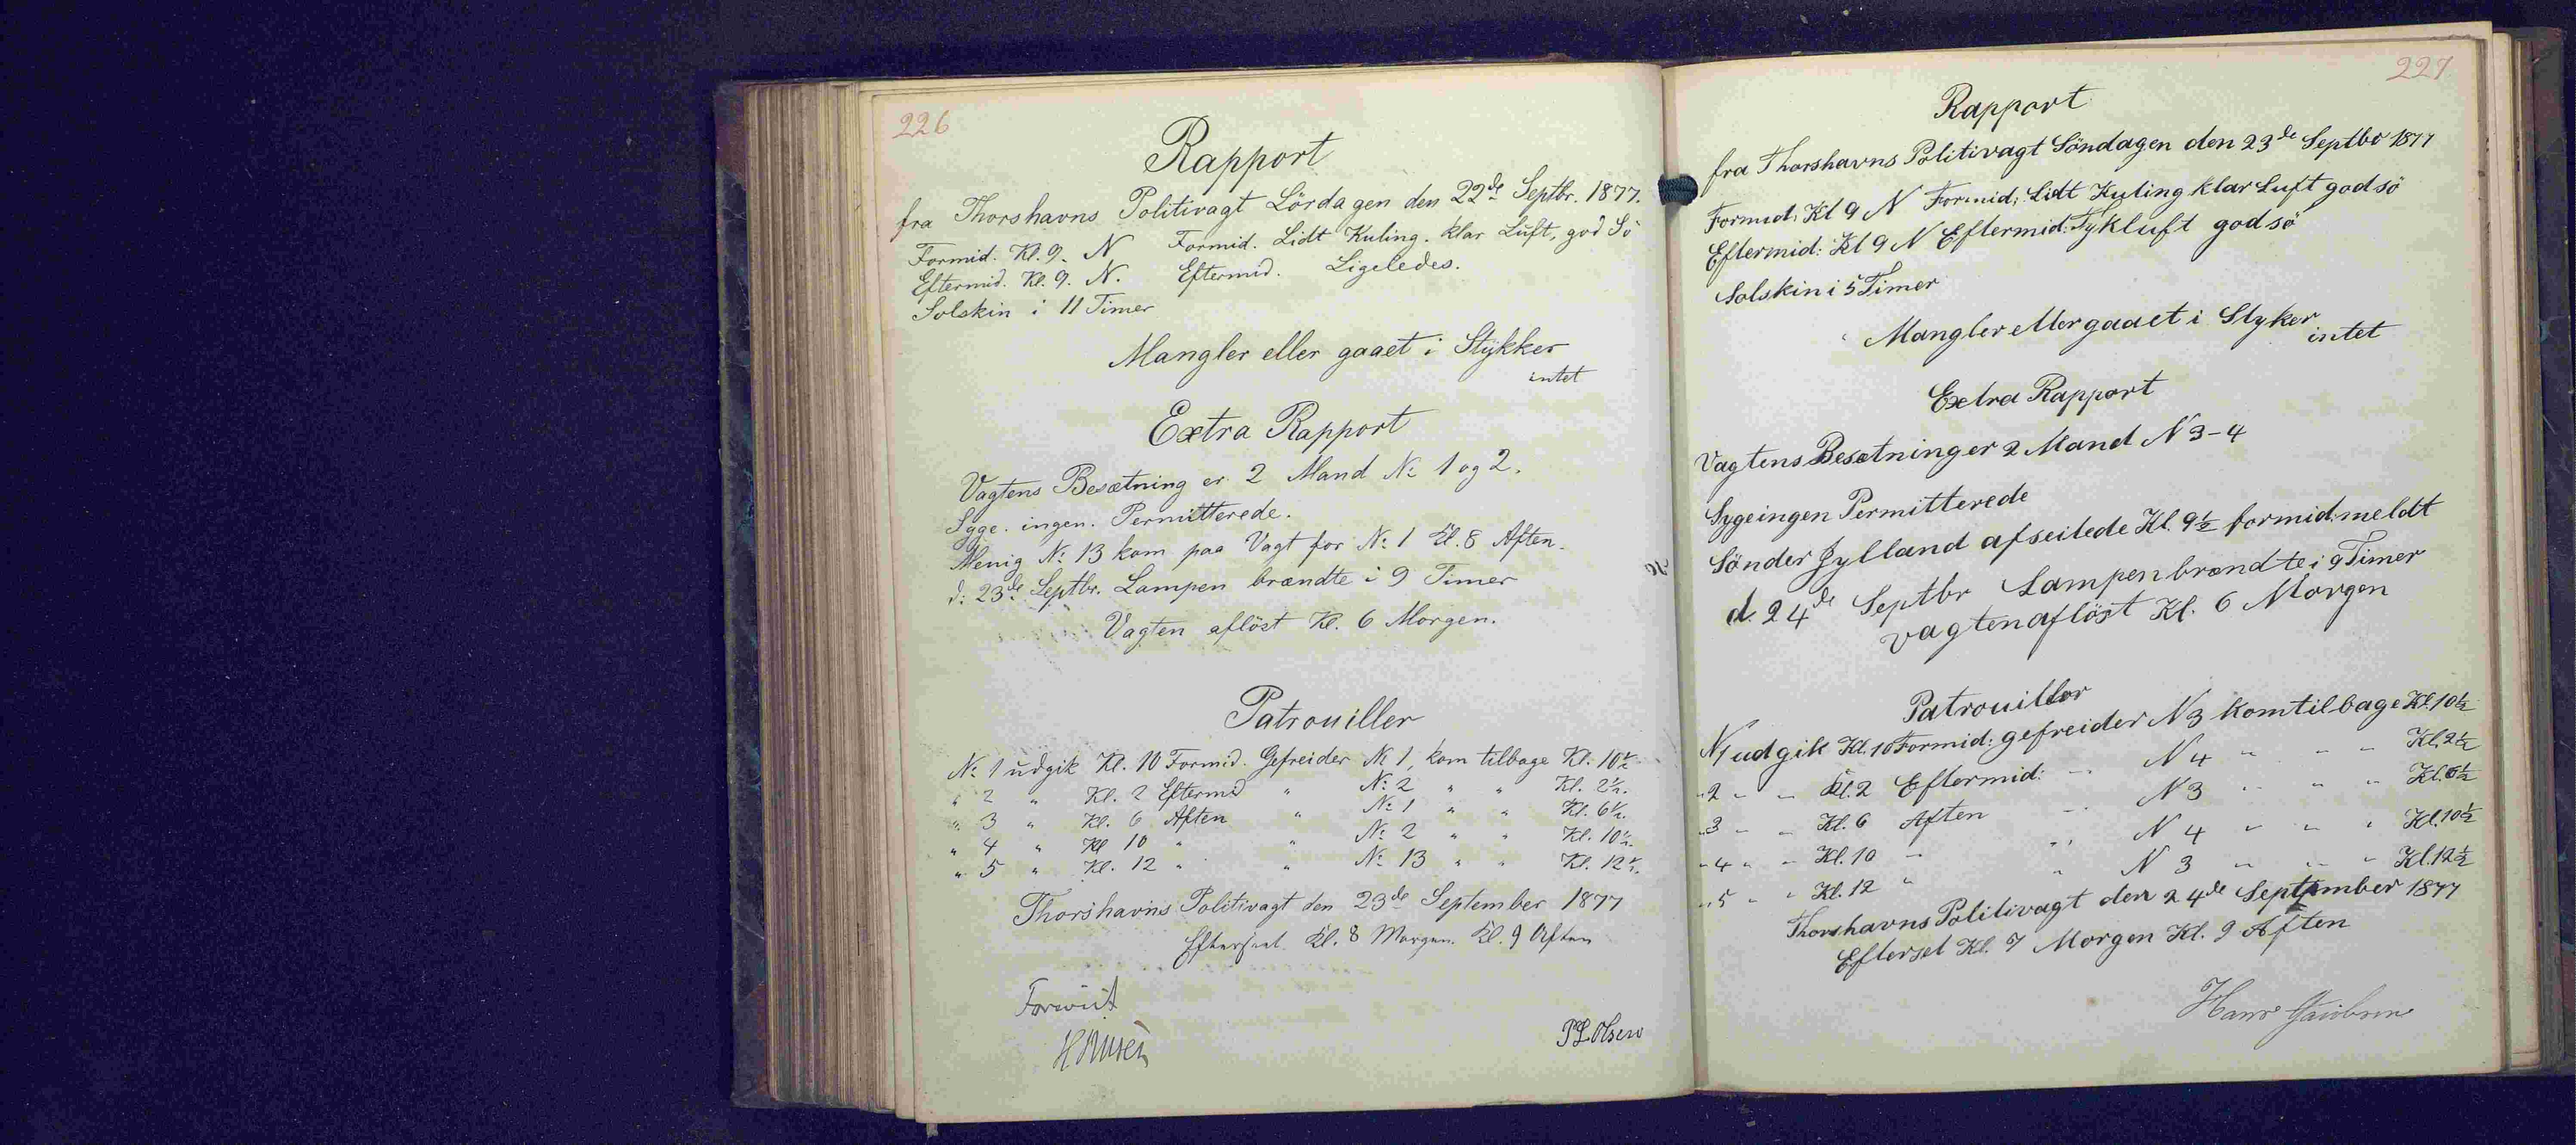 226
Rapport
fra Thorshavns Politivagt Lördagen den 22de Septbr. 1877.
Formid. Kl. 9. N Formid. Lidt Kuling. klar Luft, god Sö
Eftermid. Kl. 9. N. Eftermid. Ligeledes.
Solskin i 11 Timer
Mangler eller gaaet i Stykker
intet
Extra Rapport
Vagtens Besætning er 2 Mand No 1 og 2.
Syge. ingen. Permitterede.
Menig No 13 kom paa Vagt for No 1 Kl. 8 Aften.
d: 23de Septbr. Lampen brændte i 9 Timer
Vagten aflöst Kl. 6 Morgen.
Patrouiller
No 1 udgik Kl. 10 Formid. Gefreider No 1, kom tilbage Kl. 10½
" 2 " Kl. 2 Eftermd " No 2 " " Kl. 2½.
" 3 " Kl. 6 Aften " No 1 " " Kl. 6½.
" 4 " Kl 10 " " No 2 " " Kl. 10½.
" 5 " Kl. 12 " " No 13 " " Kl. 12½.
Thorshavns Politivagt den 23de September 1877
Efterseet Kl. 8 Morgen. Kl. 9 Aften
Forevist
P L Olsen
227
Rapport
fra Thorshavns Politivagt Söndagen den 23de Septbr 1877
Formid: Kl 9 N Formid: Lidt Kuling klar Luft god sö
Eftermid: Kl 9 N Eftermid: Tykluft god sö
Solskin i 5 Timer
Mangler eller gaaet i Styker
intet
Extra Rapport
Vagtens Besætning er 2 Mand N 3-4
Syge ingen Permitterede
Sönder Jylland afseilede Kl. 9½ formid: meldt
d. 24de Septbr Lampen brændte i 9 Timer
vagten aflöst Kl. 6 Morgen
Patrouiller
N1 udgik Kl. 10 Formid: gefreider N 3 kom tilbage Kl. 10½
" 2 " " Kl. 2 Eftermid: " N 4 " " " Kl. 2½
" 3 " " Kl. 6 Aften " N 3 " " " Kl. 6½
" 4 " " Kl. 10 " " N 4 " " " Kl. 10½
" 5 " " Kl. 12 " " N 3 " " " Kl. 12½
Thorshavns Politivagt den 24de September 1877
Efterset Kl. 7 Morgen Kl. 9 Aften
Hans Jacobsen